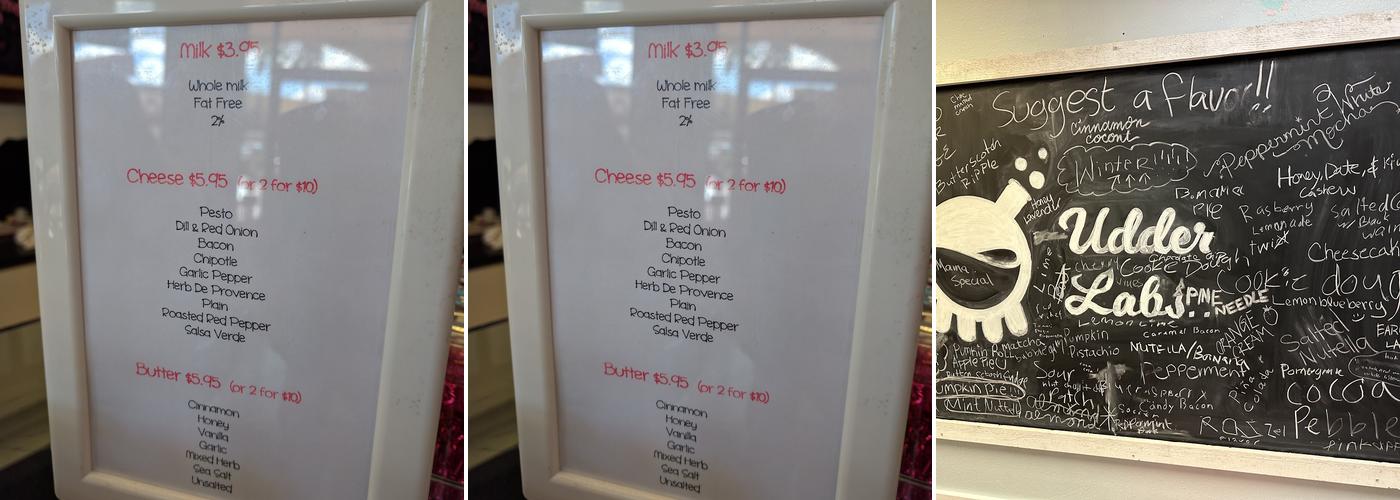 Milk $3.95
Whole milk
Fat Free
2%
Cheese $5.95 (or 2 for $10)
Pesto
Dill & Red Onion
Bacon
Chipotle
Garlic Pepper
Herb De Provence
Plain
Roasted Red Pepper
Salsa Verde
Butter $5.95 (or 2 for $10)
Cinnamon
Honey
Vanilla
Garlic
Mixed Herb
Sea Salt
Unsalted
Milk $3.95
Whole milk
Fat Free
2%
Cheese $5.95 (or 2 for $10)
Pesto
Dill & Red Onion
Bacon
Chipotle
Garlic Pepper
Herb De Provence
Plain
Roasted Red Pepper
Salsa Verde
Butter $5.95 (or 2 for $10)
Cinnamon
Honey
Vanilla
Garlic
Mixed Herb
Sea Salt
Unsalted
Suggest a flavor!!
cinnamon
Butterscotch
Ripple
Winter
Peppermint
White
Mocha
Honey, Date, &
Cashew
Honey
Lavender
Pie
Rasberry
Lemonade
twist
Salted
Udder
Labs..
Mama
Special
Cookie Dough
Cheesecak
Cookie doug
PINE
NEEDLE
Lemon blueberry
Lemon Lime
Caramel Bacon
ORANGE
CREAM
Salted
Nutella
Matcha
Pumpkin
Pistachio
NUTELLA/
Apple Pie
Sour
Patch
Peppermint
Pomegranate
Piña
Colada
cocoa
umpkin Pie
Mint Nutella
almond
Candy Bacon
Peppermint
Pebble